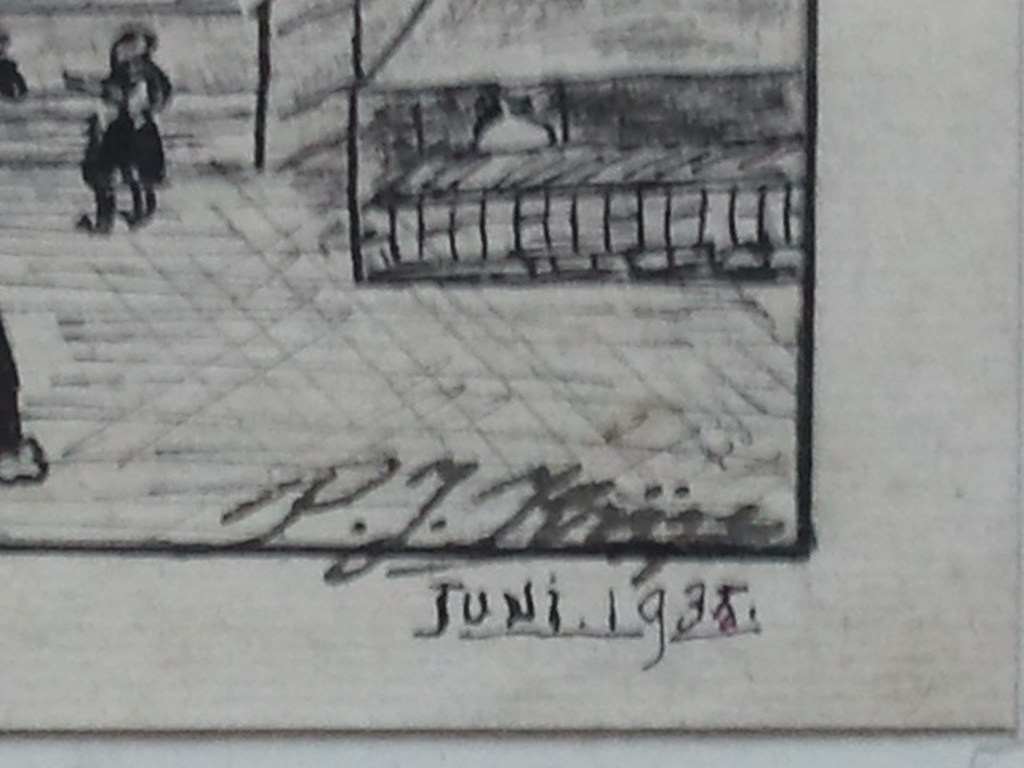 P. J. Krijse
JUNi. 1935.